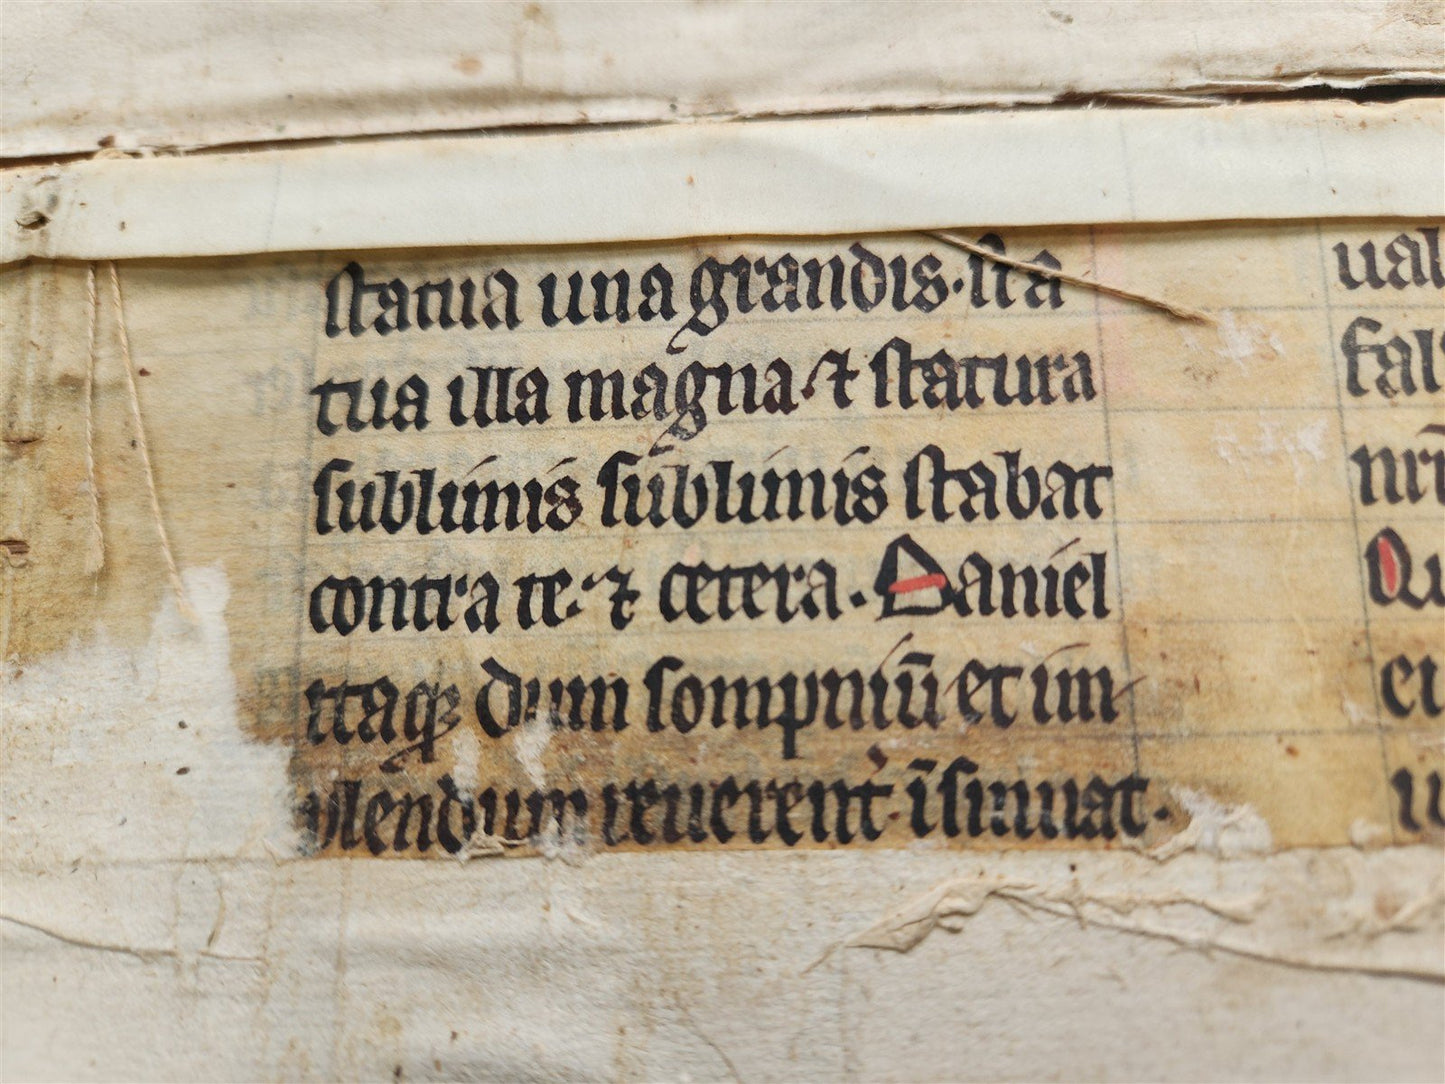 statua una grandis · sta
tua illa magna · ⁊ statura
sublimis sublimis stabat
contra te · ⁊ cetera · Daniel
itaqꝫ dum sompniū et im
plendum reuerent̾ īsinuat ·
ual
fal
nr̄i
Qu
ei
u